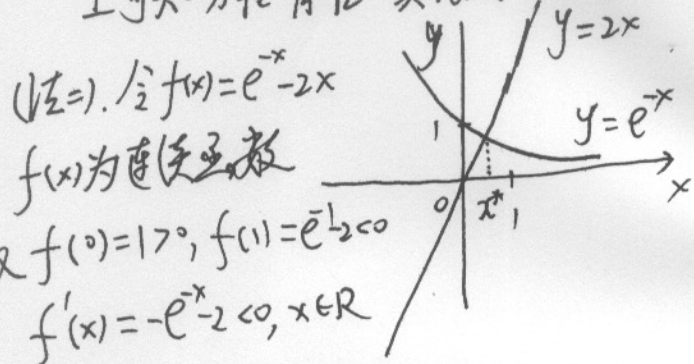 (法二). 令f(x)=e^{-x}-2x
f(x)为连续函数
又f(0)=1>0, f(1)=e^{-1}-2<0
f'(x)=-e^{-x}-2<0, x∈R
y
y=2x
1
y=e^{-x}
0
x*
1
x